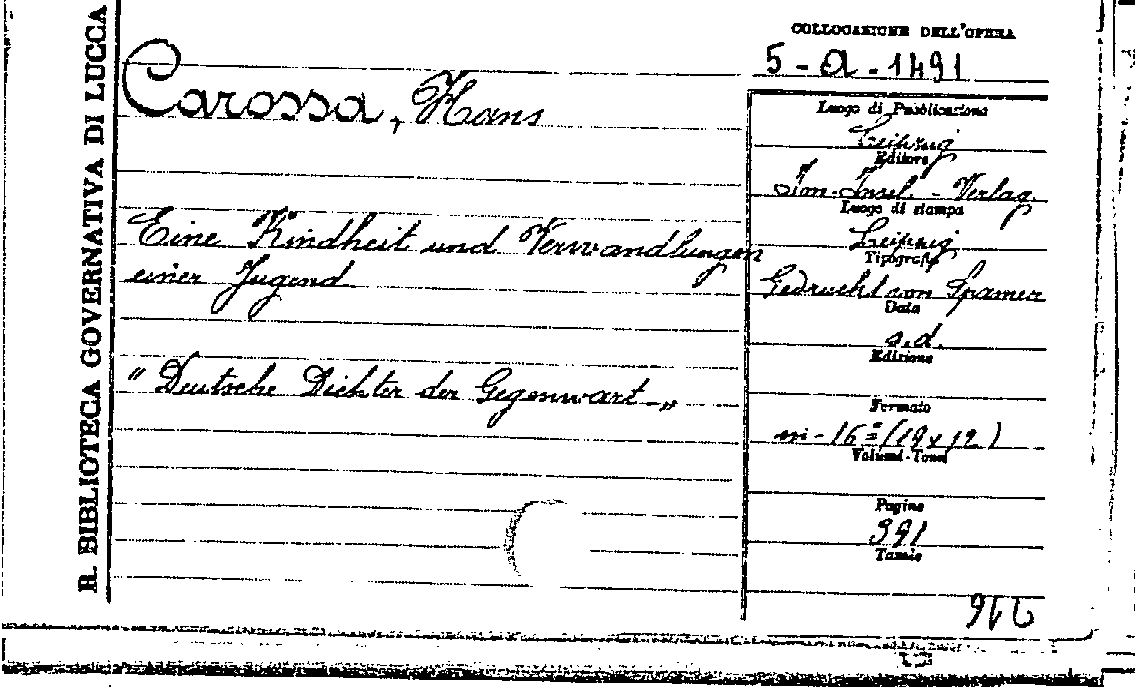 R. BIBLIOTECA GOVERNATIVA DI LUCCA
COLLOCAZIONE DELL'OPERA
5-a-1491
Carossa, Hans
Eine Kindheit und Verwandlungen
einer Jugend
"Deutsche Dichter der Gegenwart-"
Luogo di Pubblicazione
Leipzig
Editore
Im-Insel-Verlag
Luogo di stampa
Leipzig
Tipografia
Gedruckt von Spamer
Data
s.d.
Edizione
Formato
in-16º (19x12)
Volumi-Tomi
Pagine
391
Tavole